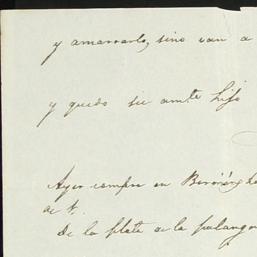 y amarrarlo, sino van a
y quedo su amte hijo
Ayer compre en
de
De la plata de la palangan